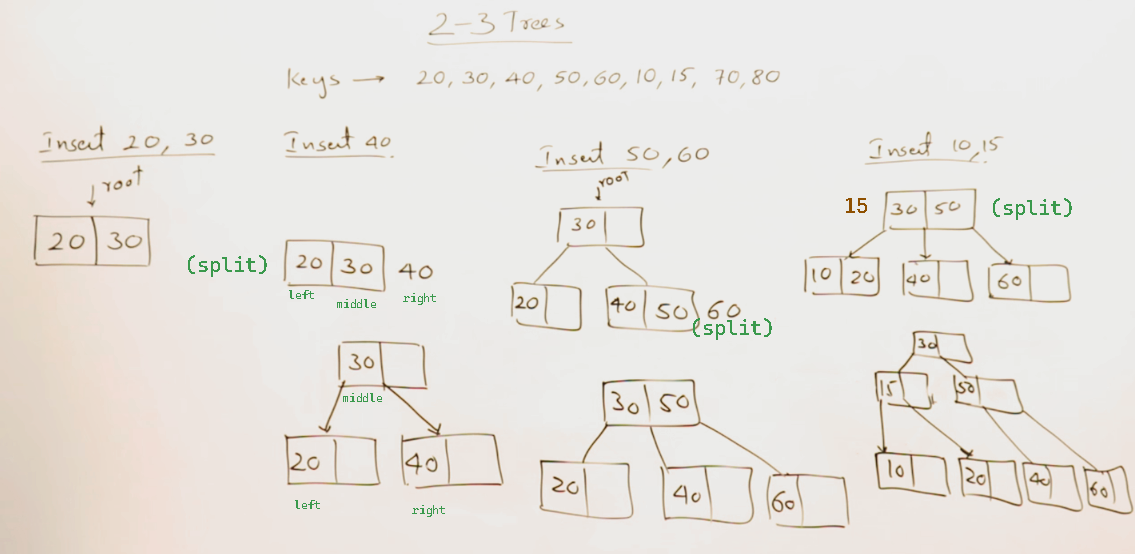 2-3 Trees
Keys → 20, 30, 40, 50, 60, 10, 15, 70, 80
Insert 20, 30
root
20 30
Insert 40
(split) 20 30 40
left middle right
30
middle
20 40
left right
Insert 50, 60
root
30
20 40 50 60
(split)
30 50
20 40 60
Insert 10, 15
15 30 50 (split)
10 20 40 60
30
15 50
10 20 40 60